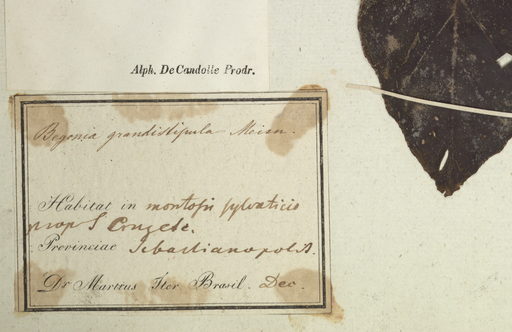 Alph. DeCandolle Prodr.
Begonia grandistipula Meisn.
Habitat in montosis sylvaticis
prope S Cruzete.
Provinciae Sebastianopolit.
Dr Martius Iter Brasil. Dec.